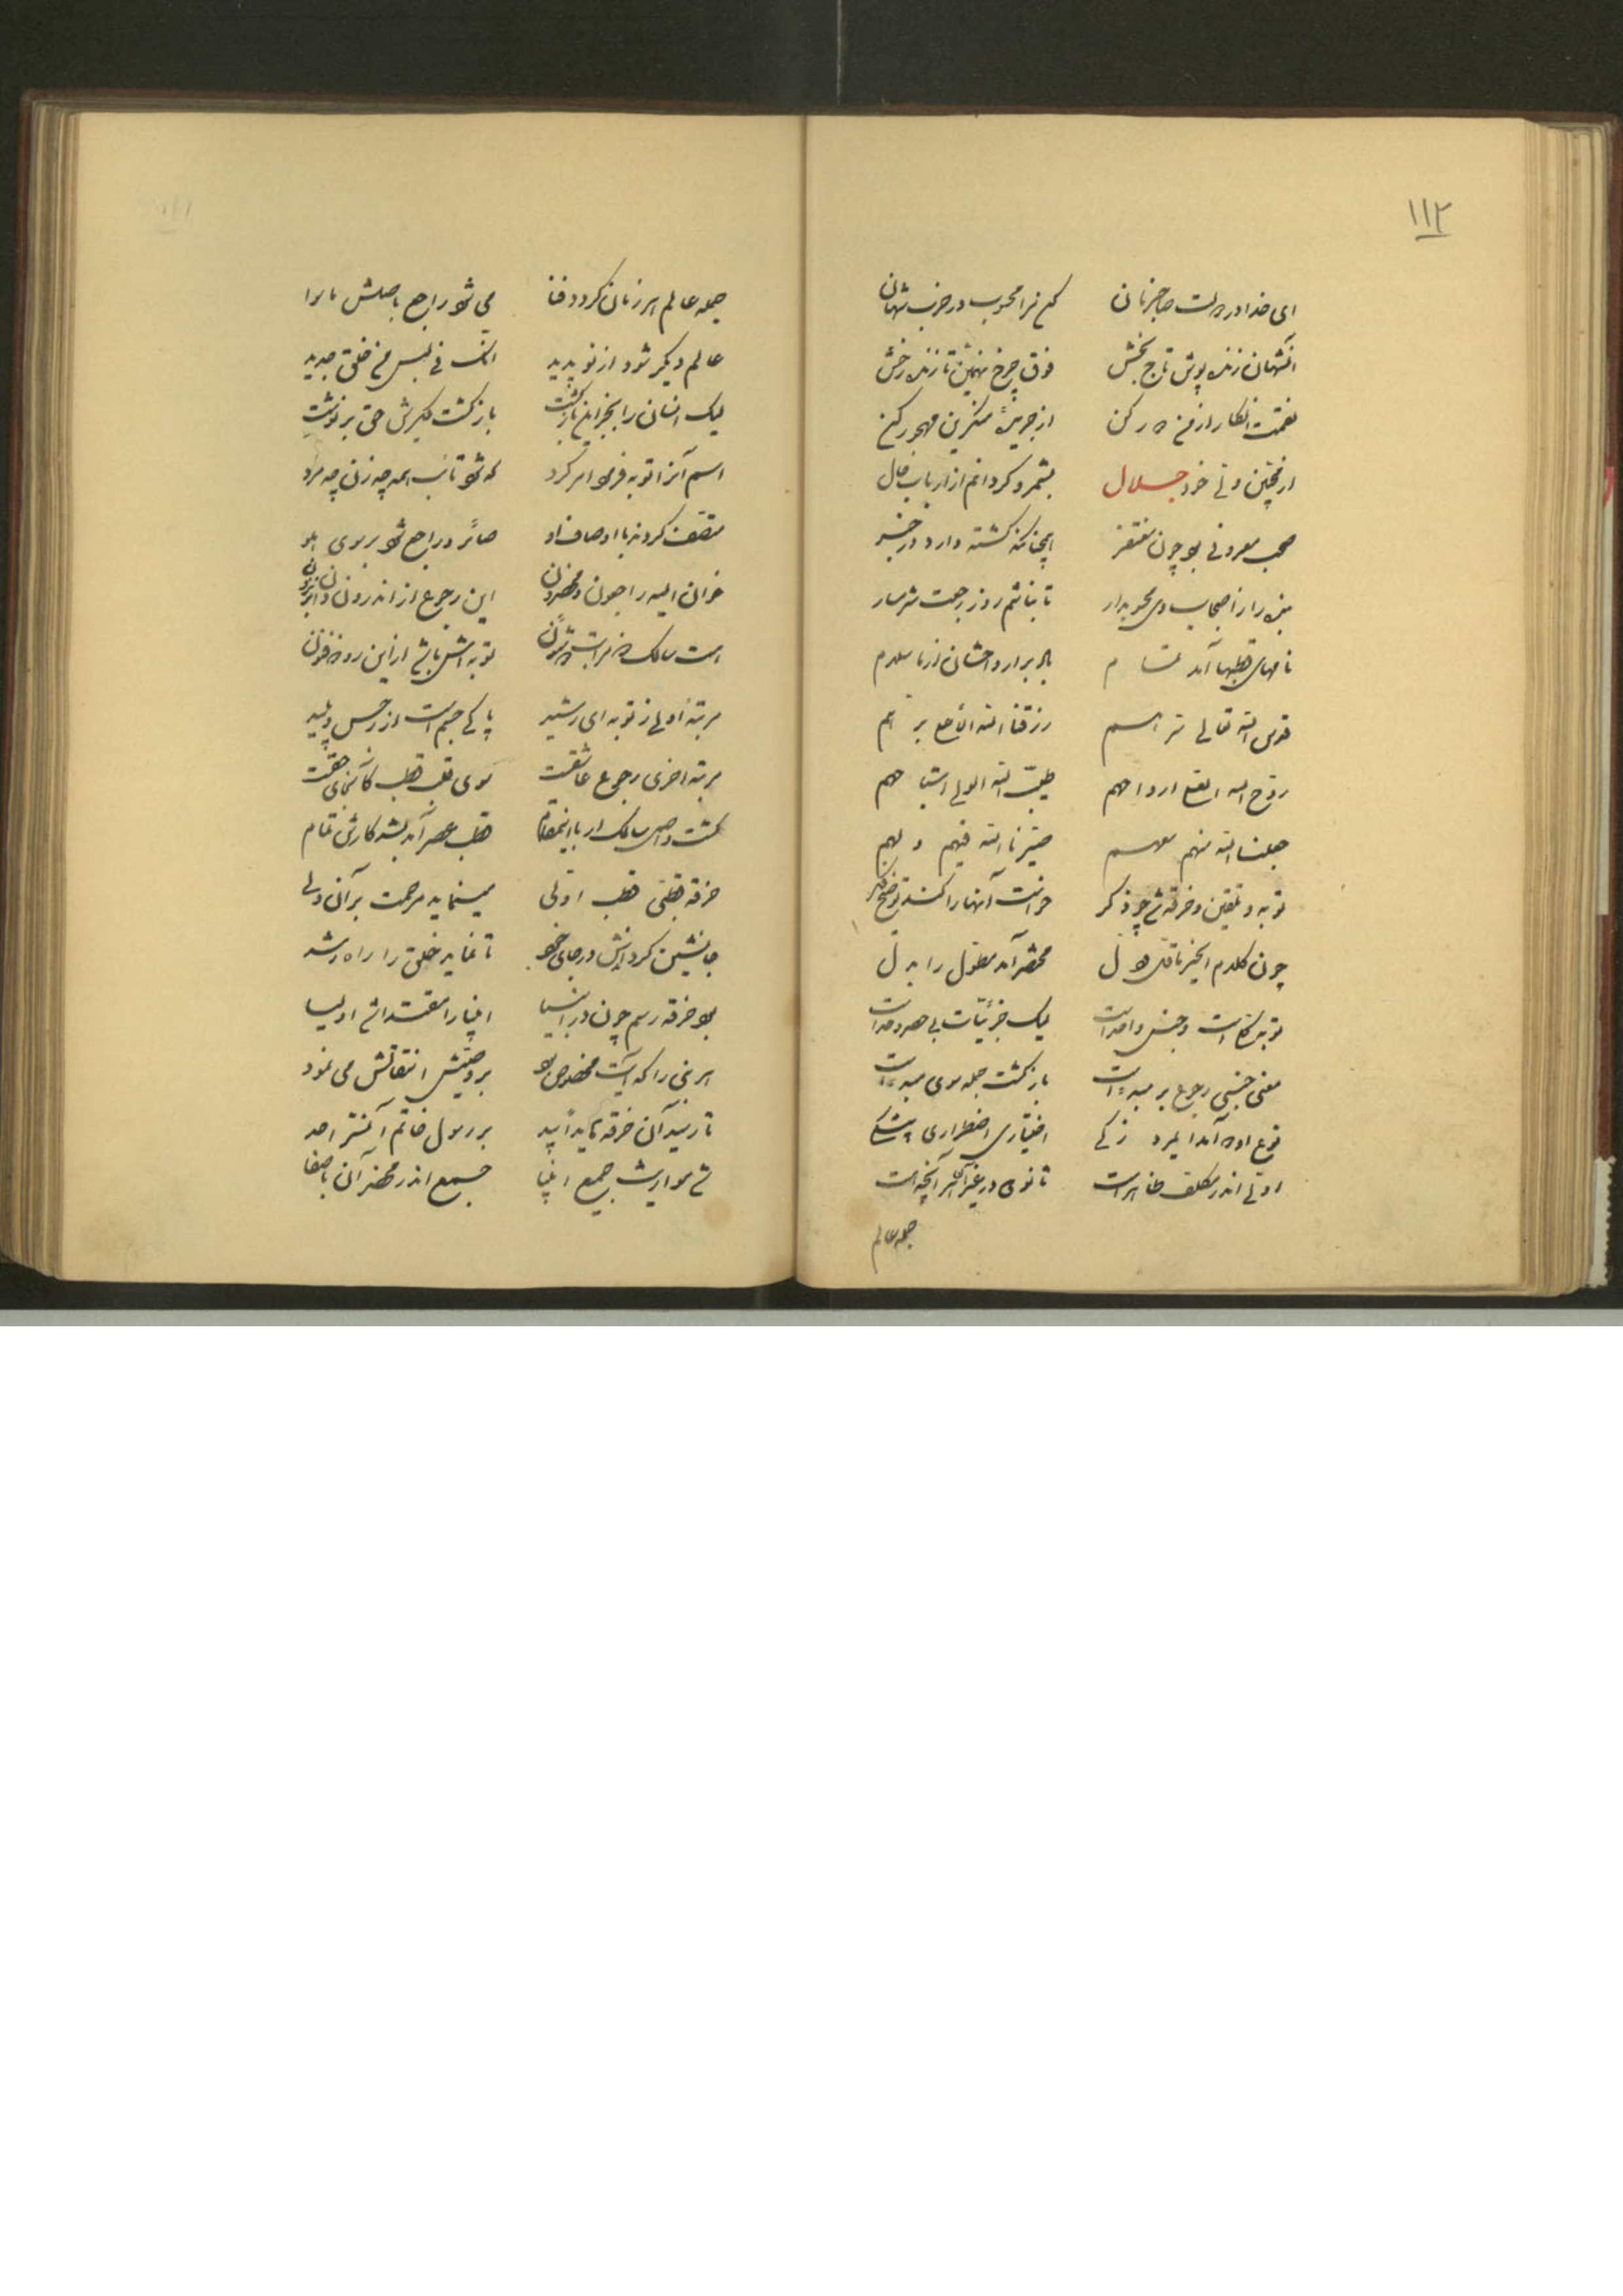 ۱۱۲
ای خدا در دولت صاحبزمان کن مرا محسوب در حزب شهان
آنشهان زنده پوش تاج بخش فوق چرخ نهمین تازنده رخش
نقمت انکار از من دور کن از جریده منکرین مهجور کن
از نخستین وتی خود جلال بشمرد گردانم از ارباب حال
صحب معروفی بود چون مفتقر همچنانکه گشته وارد در خبر
بنده را از اصحاب وی محسوبدار تا نباشم روز رجعت شرمسار
نامهای قطبها آمد تمام باد بر ارواحشان از ما سلام
قدس الله تعالی سرهم رزقنا الله الاصلع برهم
روح الله ارواحهم طیب الله اشباحهم
جعلنا الله منهم معهم صیرنا الله فیهم ولهم
توبه و تلقین و خرقه شرح ذکر خواست آنها را کند توضیح فکر
چون کلام الخیر ما قل ودل مختصر آمد مطول را بدل
توبه کلی است وجنس واحد است لیک جزئیات بی حصر وحد است
معنی جنسی رجوع بر مبدء است بازگشت جمله سوی مبدء است
نوع او دو آمد ایمرد زکی اختیاری اضطراری بیشکی
اولی اندر مکلف ظاهر است ثانوی در غیر آن هر آنچه است
جمله عالم
جمله عالم هر زمان گردد فنا می شود راجع باصلش ماسوا
عالم دیگر شود از نو پدید انک فی لبس من خلق جدید
لیک انسان را بجز این بازگشت بازگشت دیگرش حق برنوشت
اسم آنرا توبه فرمود امر کرد که شود تائب همه چه زن چه مرد
متصف گردند با اوصاف او صائر وراجع شود بر سوی هو
خوان الیه راجعون این رجوع از اندرون دان
است سالک توبه اش باشد از این رو ذو فنون
مرتبه اولی ز توبه ای رشید پاکی جسم است از رجس پلید
مرتبه اخری رجوع عاشقت سوی قلب قطب
گشت واصل سالک ار با اینمقام قطب عصر آمد بشد کارش تمام
خرقه قطبی قطب اولی مینماید مرحمت بر آن ولی
جانشین گرداندش در جای خود تا نماید خلق را راه رشد
بود خرقه رسم چون در انبیا انبیا را مقتدا شد اولیا
هر نبی را که مخصوص بود بر وصیش انتقالش می نمود
تا رسید آن خرقه بر رسول خاتم احمد
شد مواریث جمیع انبیا جمع اندر محضر آن با صفا